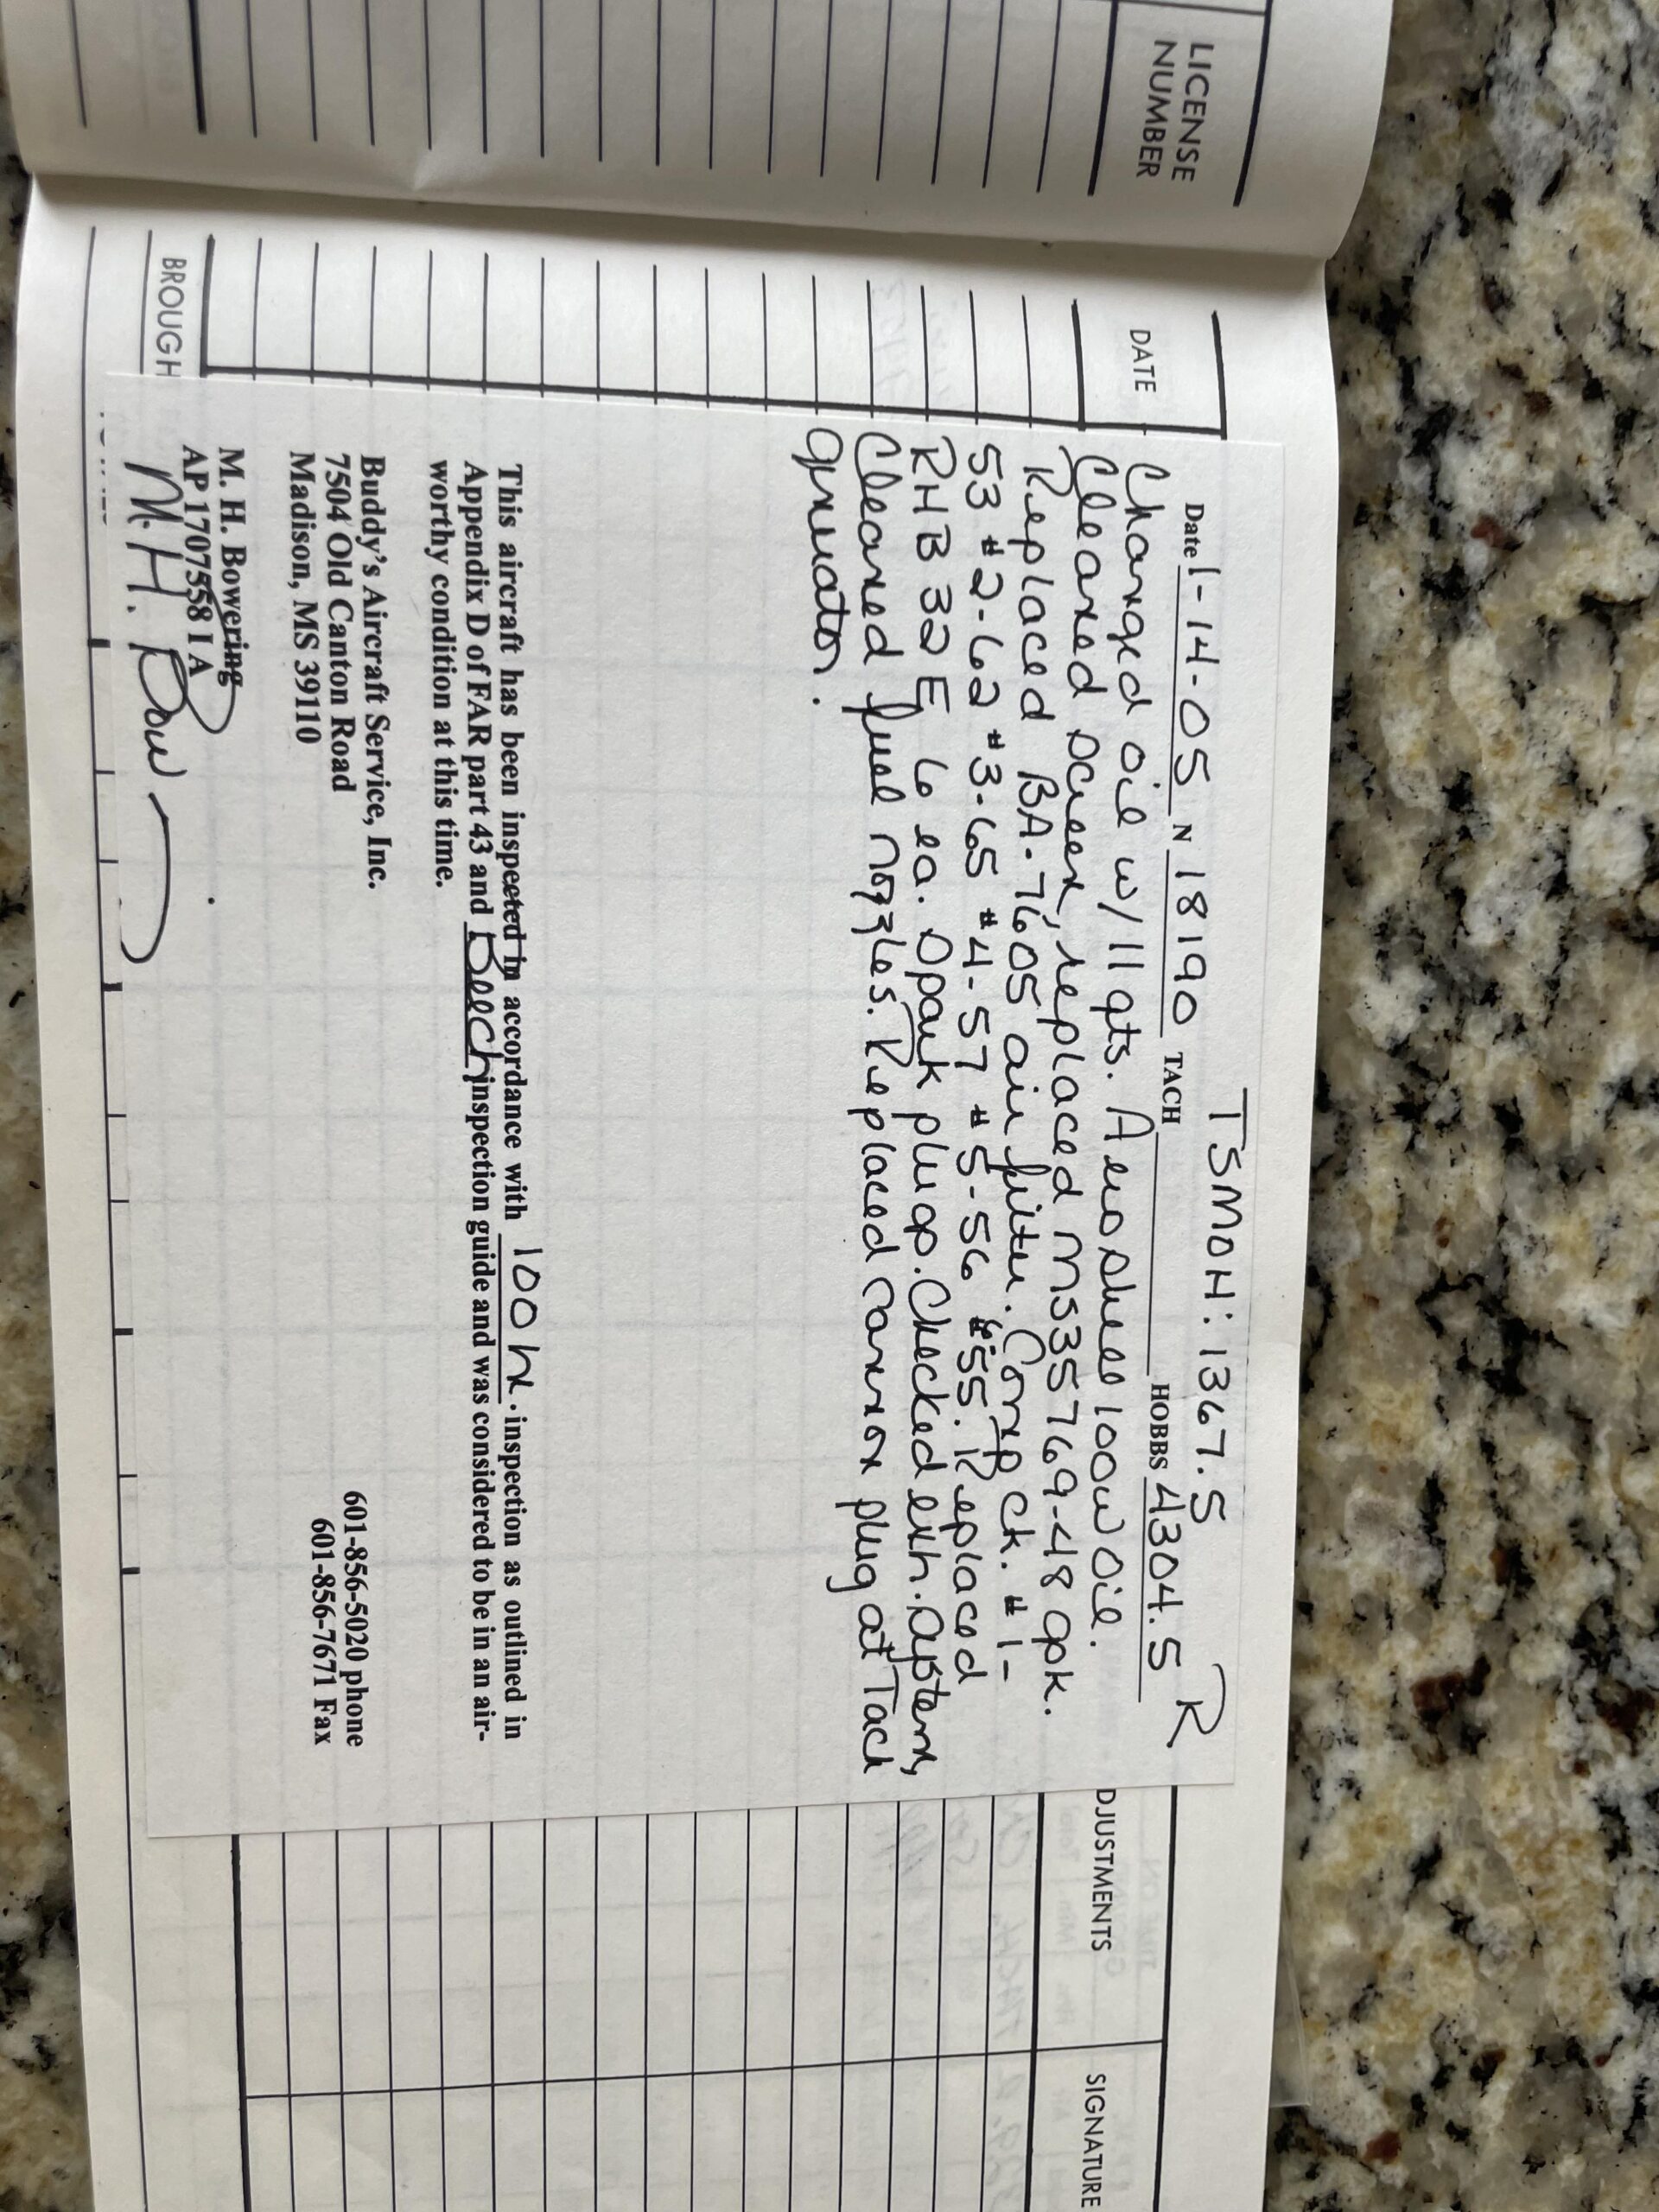 LICENSE
NUMBER
DATE
DJUSTMENTS
SIGNATURE
TSMOH: 1367.5 R
Date 1-14-05 N 18190 TACH HOBBS 4304.5
Changed oil w/11 qts. Aeroshell 100W oil.
Cleaned screen, replaced MS35769-48 gsk.
Replaced BA-7605 air filter. Comp ck. #1-
53 #2-62 #3-65 #4-57 #5-56 #6-55. Replaced
RHB32E 6 ea. spark plugs. Checked exh. system,
Cleaned fuel nozzles. Replaced cannon plug at Tach
generator.
This aircraft has been inspected in accordance with 100 hr. inspection as outlined in
Appendix D of FAR part 43 and Beech inspection guide and was considered to be in an air-
worthy condition at this time.
Buddy's Aircraft Service, Inc.
7504 Old Canton Road 601-856-5020 phone
Madison, MS 39110 601-856-7671 Fax
M. H. Bowering
AP 1707558 I A
M. H. Bow
BROUGH